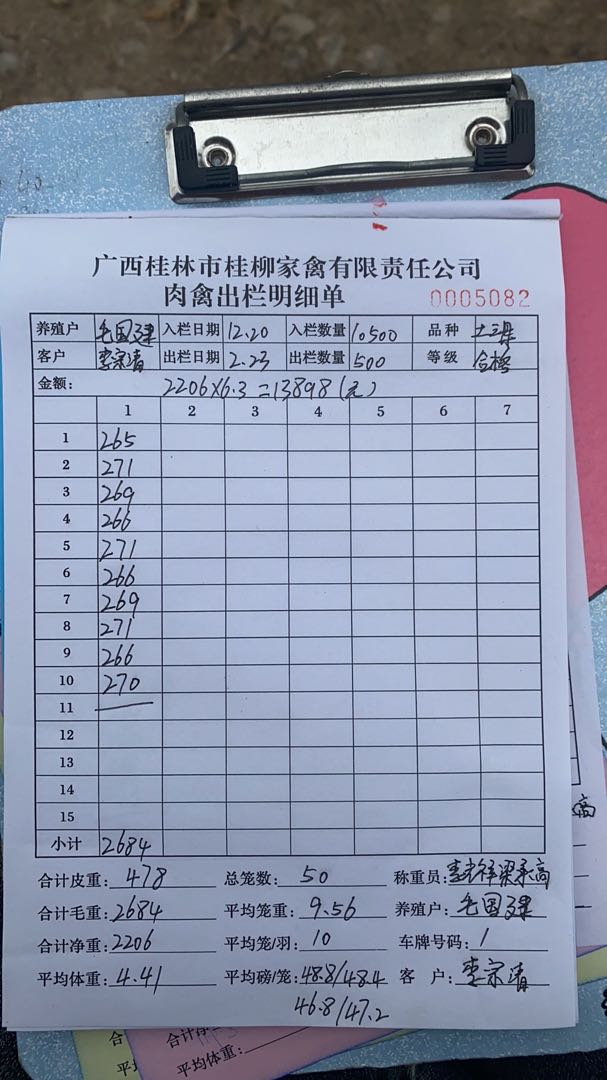 广西桂林市桂柳家禽有限责任公司
肉禽出栏明细单 0005082
养殖户 毛国建 入栏日期 12.20 入栏数量 10500 品种
客户 李宗清 出栏日期 2.23 出栏数量 500 等级 合格
金额: 2206×6.3=13898(元)
1 2 3 4 5 6 7
1 265
2 271
3 269
4 266
5 271
6 266
7 269
8 271
9 266
10 270
11
12
13
14
15
小计 2684
合计皮重: 478 总笼数: 50 称重员:
合计毛重: 2684 平均笼重: 9.56 养殖户: 毛国建
合计净重: 2206 平均笼/羽: 10 车牌号码: 1
平均体重: 4.41 平均磅/笼: 48.8/48.4 客 户: 李宗清
46.8/47.2
高
合计
平均体重: